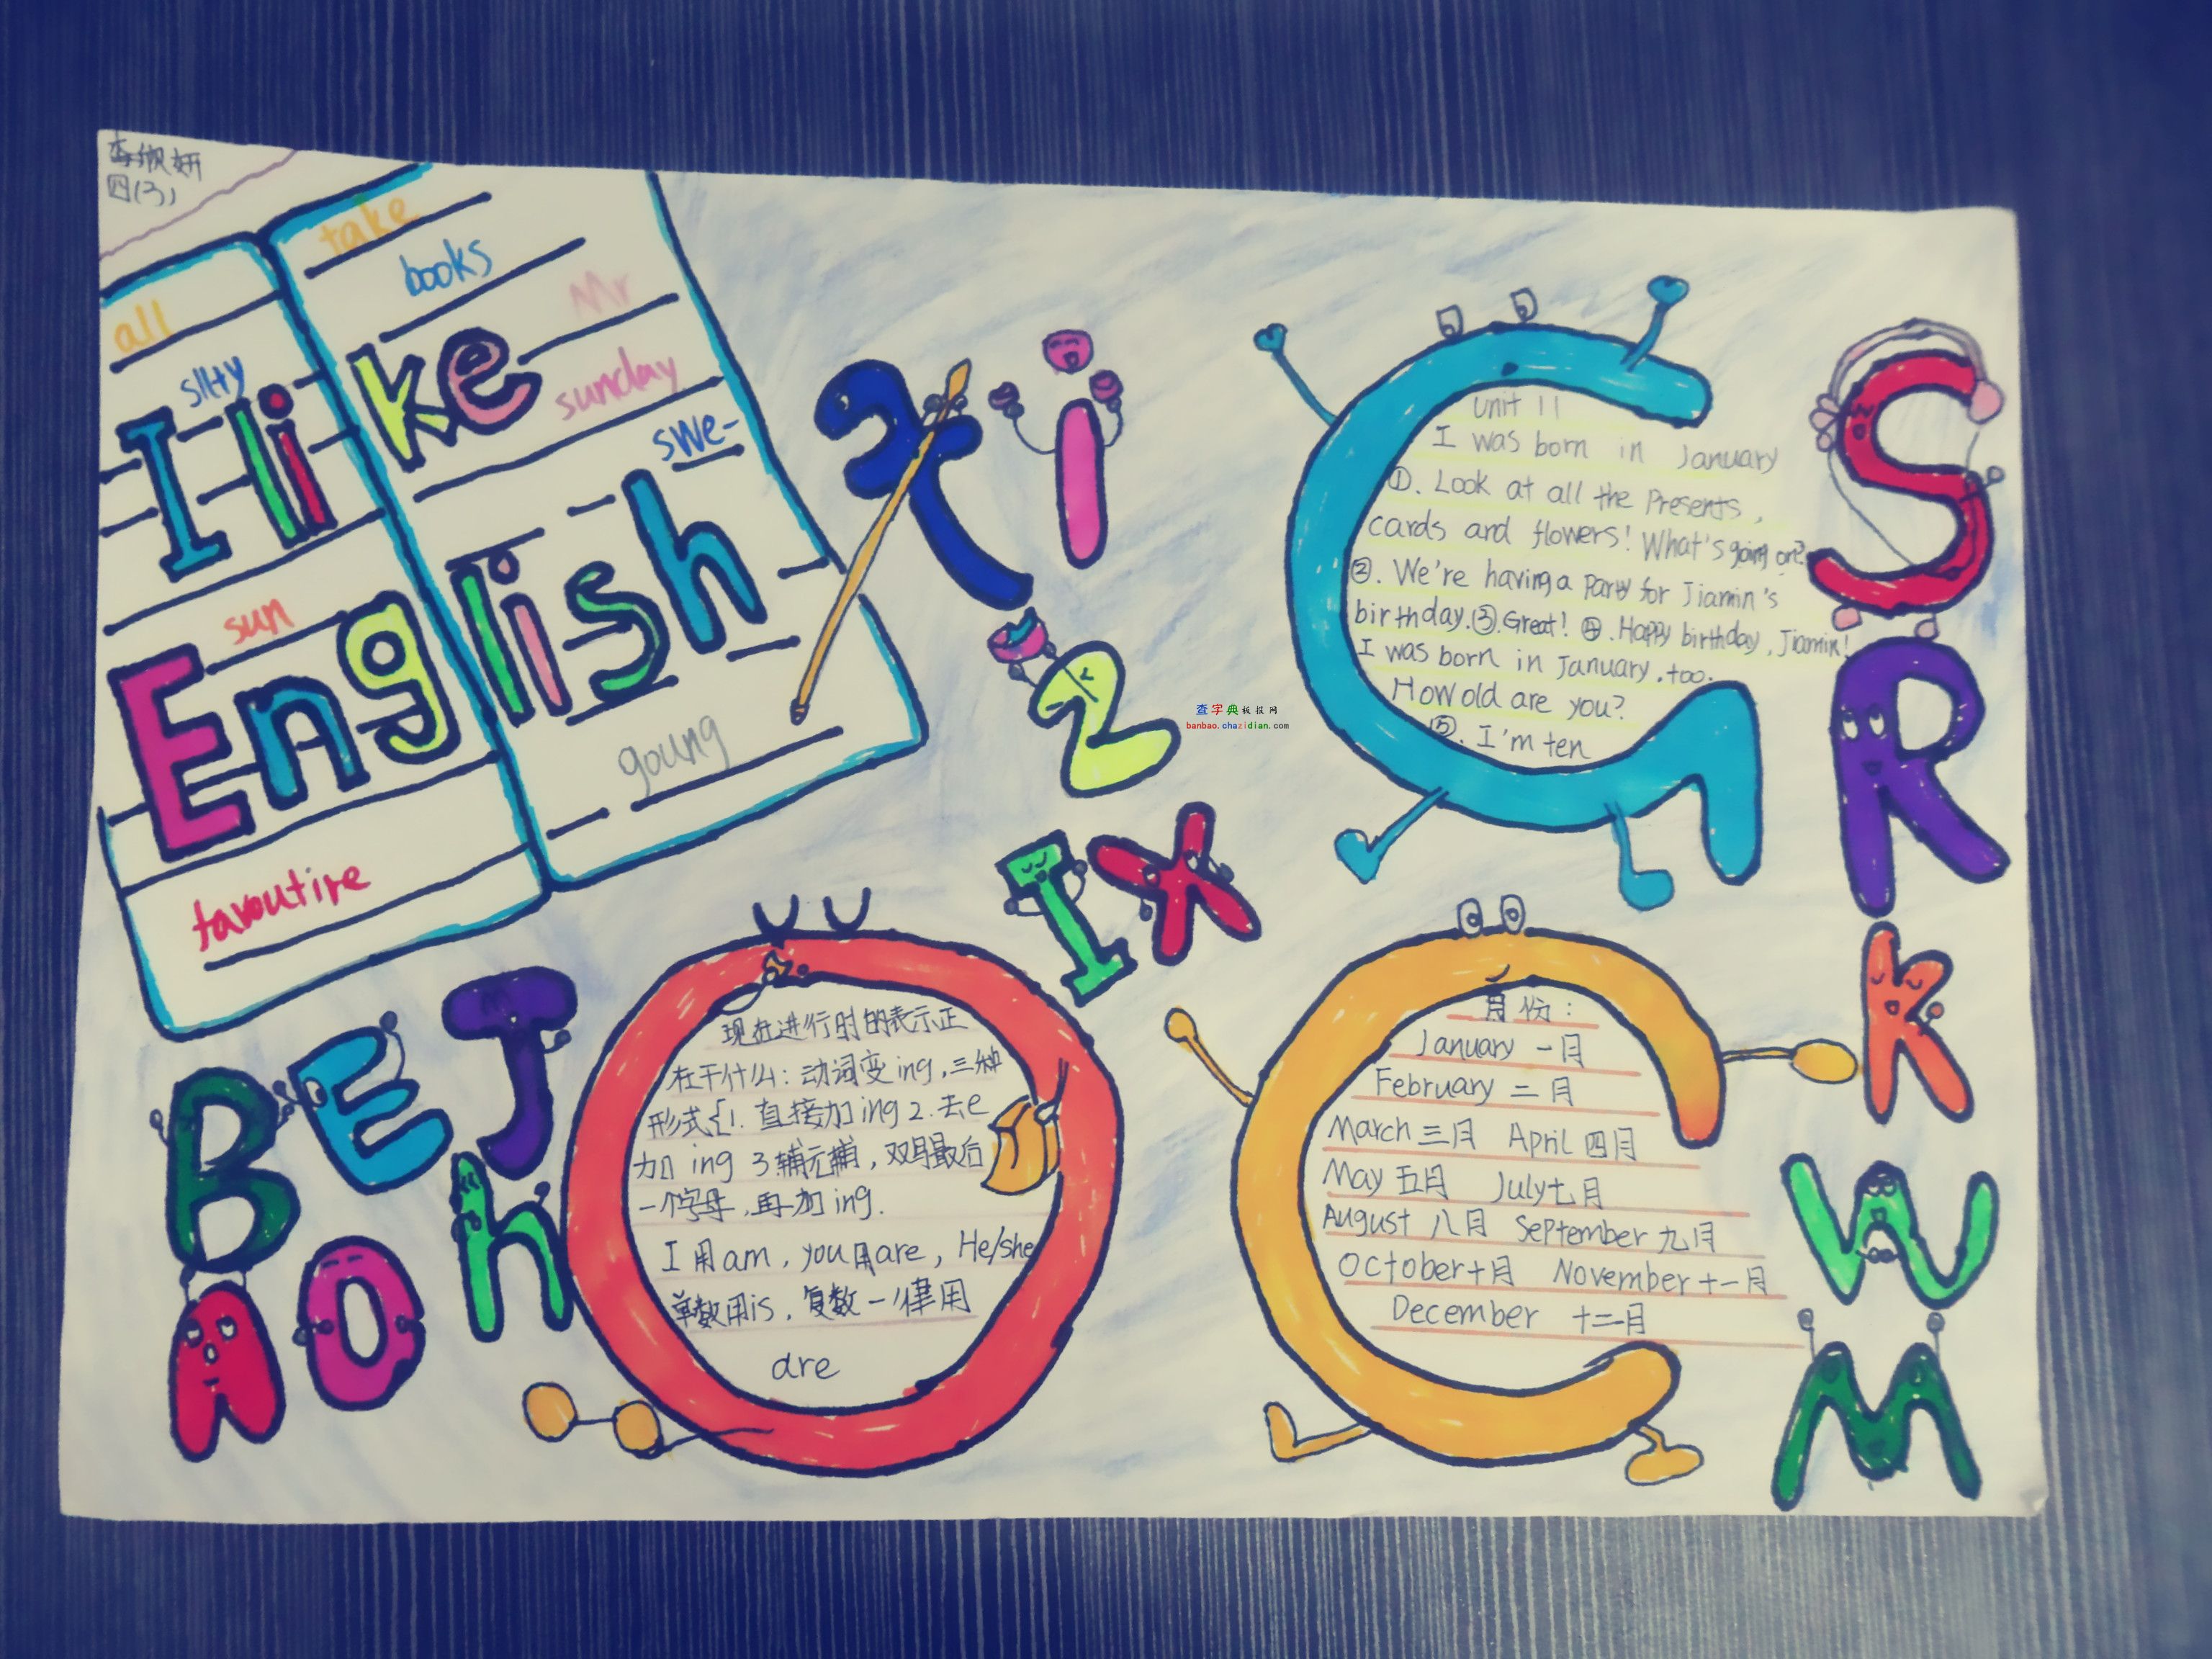 四(3)
take
books
Mr
all
sunday
swe-
I like
sun
English
goung
tavoutire
x i
2
I X
S
R
K
W
M
B E J
A O h
unit 11
I was born in January
①. Look at all the Presents,
cards and flowers! What's going on?
②. We're having a Party for Jiamin's
birthday.③.Great! ④.Happy birthday, Jiamin!
I was born in January, too.
How old are you?
⑤. I'm ten
查字典板报网
banbao.chazidian.com
现在进行时的表示正
在干什么: 动词变ing,三种
形式{1. 直接加ing 2.去e
加 ing 3 辅元辅,双写最后
一个字母,再加ing.
I 用am, you用are, He/she
单数用is, 复数一律用
are
月份:
January 一月
February 二月
March 三月 April 四月
May 五月 July 七月
August 八月 September 九月
October 十月 November 十一月
December 十二月